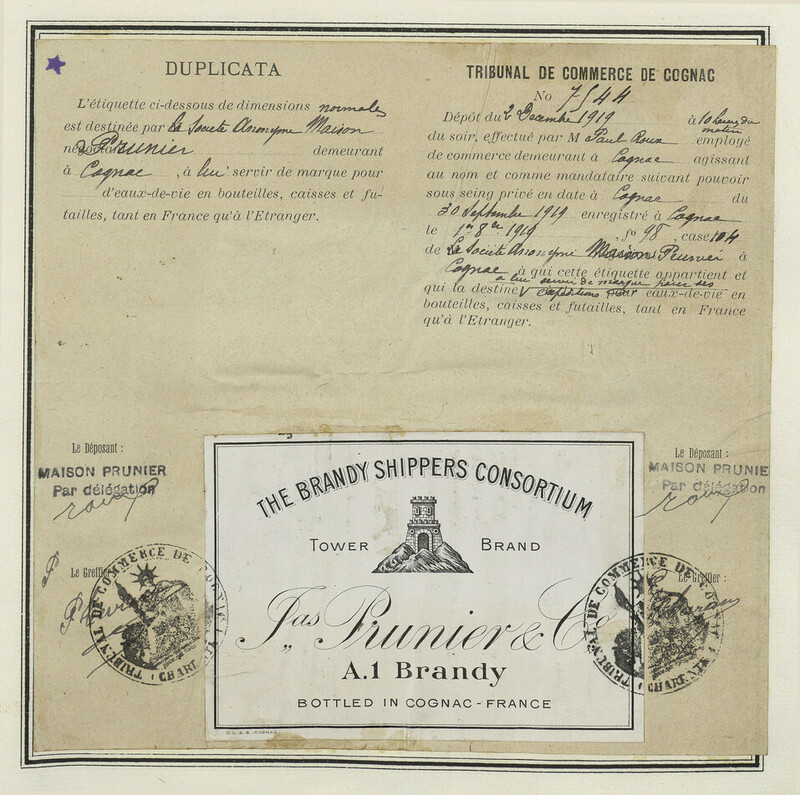 DUPLICATA
L'étiquette ci-dessous de dimensions normales
est destinée par la Societe Anonyme Maison
Prunier demeurant
à Cognac, à lui servir de marque pour
d'eaux-de-vie en bouteilles, caisses et fu-
tailles, tant en France qu'à l'Etranger.
TRIBUNAL DE COMMERCE DE COGNAC
No 7544
Dépôt du 2 Decembre 1919 à 10 heures du
matin
du soir, effectué par M Paul Roux employé
de commerce demeurant à Cognac agissant
au nom et comme mandataire suivant pouvoir
sous seing privé en date à Cognac du
30 Septembre 1919 enregistré à Cognac
le 1er 8bre 1919, fo 98, case 104
de la Societe Anonyme Maison Prunier à
Cognac à qui cette étiquette appartient et
à lui servir de marque pour ses
qui la destine expéditions eaux-de-vie en
bouteilles, caisses et futailles, tant en France
qu'à l'Etranger.
Le Déposant :
MAISON PRUNIER
Par délégation
roux
Le Greffier :
TRIBUNAL DE COMMERCE DE
Le Déposant :
MAISON PRUNIE
Par délégation
roux
Le Greffier :
TRIBUNAL DE COMMERCE DE CO
THE BRANDY SHIPPERS CONSORTIUM
TOWER BRAND
Jas Prunier & Co
A.1 Brandy
BOTTLED IN COGNAC-FRANCE